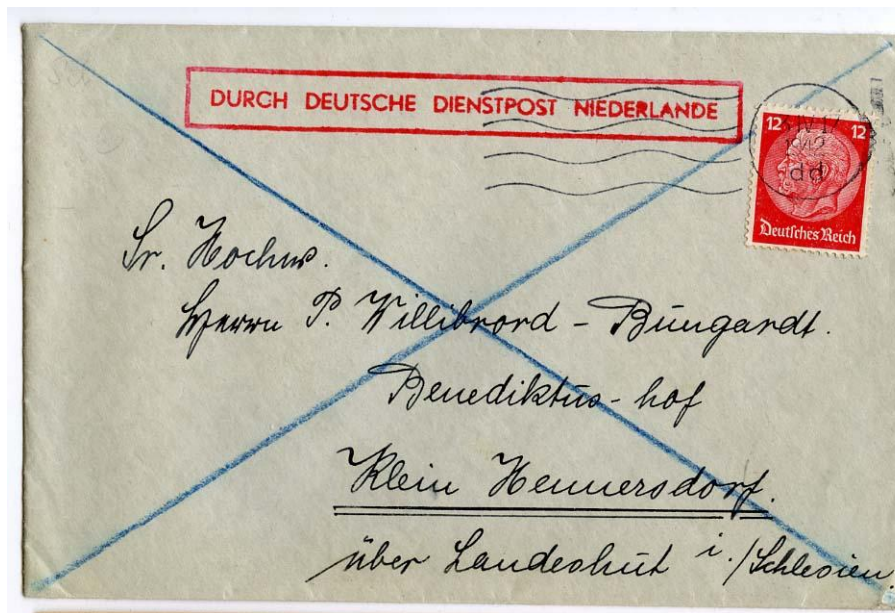 DURCH DEUTSCHE DIENSTPOST NIEDERLANDE
12 12
IV 17
1942
dd
Deutsches Reich
Sr. Hochw.
Herrn P. Willibrord - Bungardt.
Benediktus - hof
Klein Hennersdorf.
über Landeshut i./Schlesien.